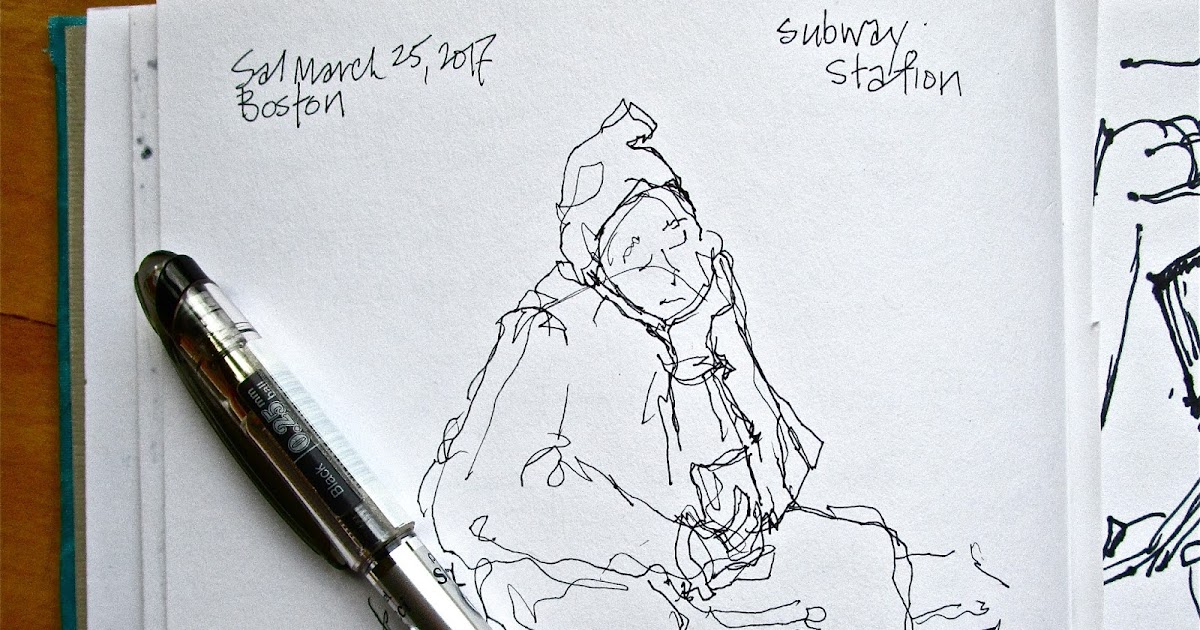 Sat March 25, 2017
Boston
subway
station
0.25 mm
ball
Black